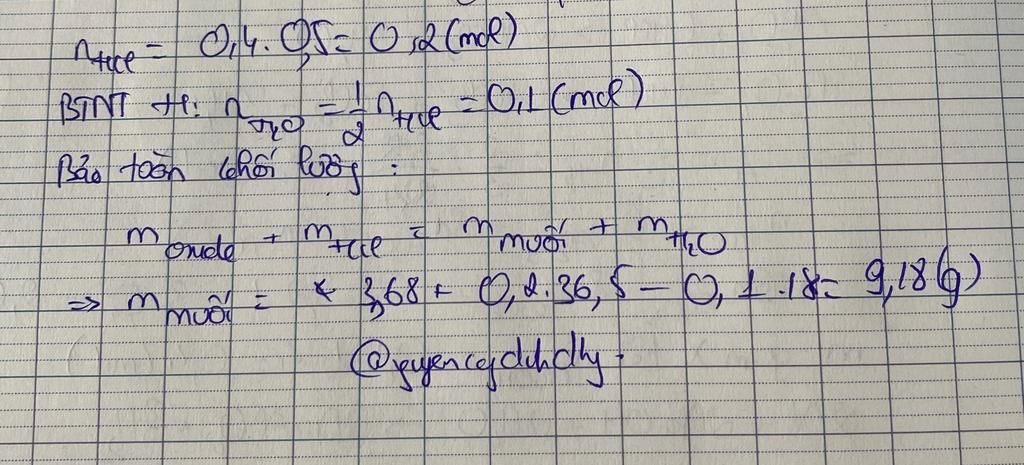 n_HCl = 0,4.0,5 = 0,2 (mol)
BTNT H: n_H₂O = 1/2 n_HCl = 0,1 (mol)
Bảo toàn khối lượng :
m_oxide + m_HCl = m_muối + m_H₂O
=> m_muối = 3,68 + 0,2.36,5 - 0,1.18 = 9,18 (g)